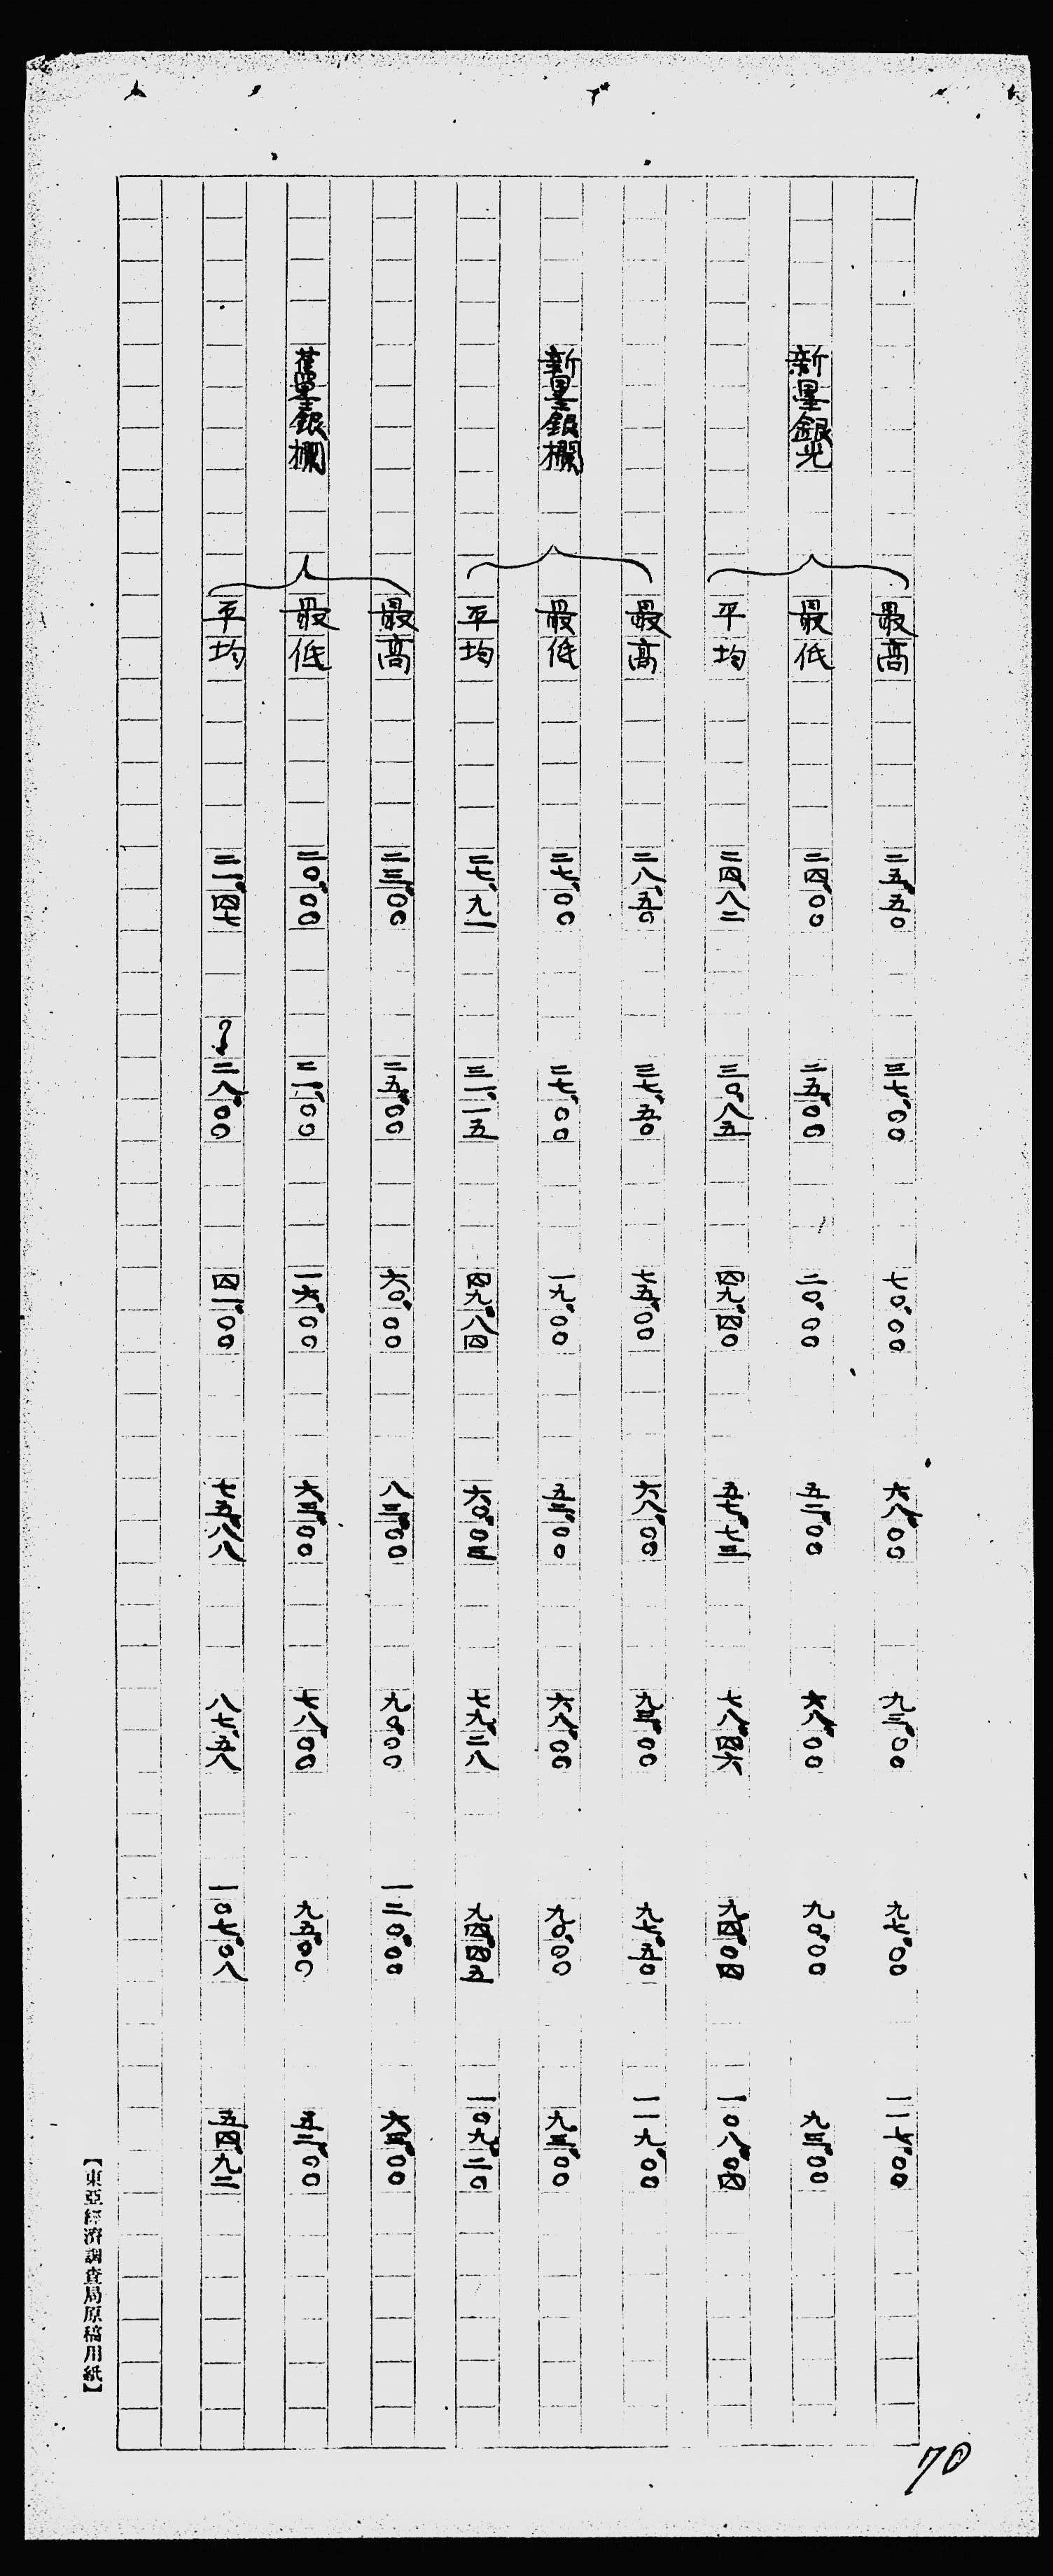 最高 二五.五〇 三七.〇〇 七〇.〇〇 六八.〇〇 九三.〇〇 九七.〇〇 一一七.〇〇
新墨銀光 最低 二四.〇〇 二五.〇〇 二〇.〇〇 五二.〇〇 六八.〇〇 九〇.〇〇 九三.〇〇
平均 二四.八二 三〇.八五 四九.四〇 五七.七三 七八.四六 九四.〇四 一〇八.〇四
最高 二八.五〇 三七.五〇 七五.〇〇 六八.〇〇 九三.〇〇 九七.五〇 一一九.〇〇
新墨銀欄 最低 二七.〇〇 二七.〇〇 一九.〇〇 五三.〇〇 六八.〇〇 九〇.〇〇 九三.〇〇
平均 二七.九一 三一.一五 四九.八四 六〇.〇三 七九.二八 九四.四五 一〇九.二〇
最高 二三.〇〇 二五.〇〇 六〇.〇〇 八三.〇〇 九〇.〇〇 一二〇.〇〇 六三.〇〇
舊墨銀欄 最低 二〇.〇〇 二一.〇〇 一六.〇〇 六三.〇〇 七八.〇〇 九五.〇〇 五二.〇〇
平均 二一.四七 二八.〇〇 四一.〇〇 七五.八八 八七.五八 一〇七.〇八 五四.九二
【東亞經濟調査局原稿用紙】
70